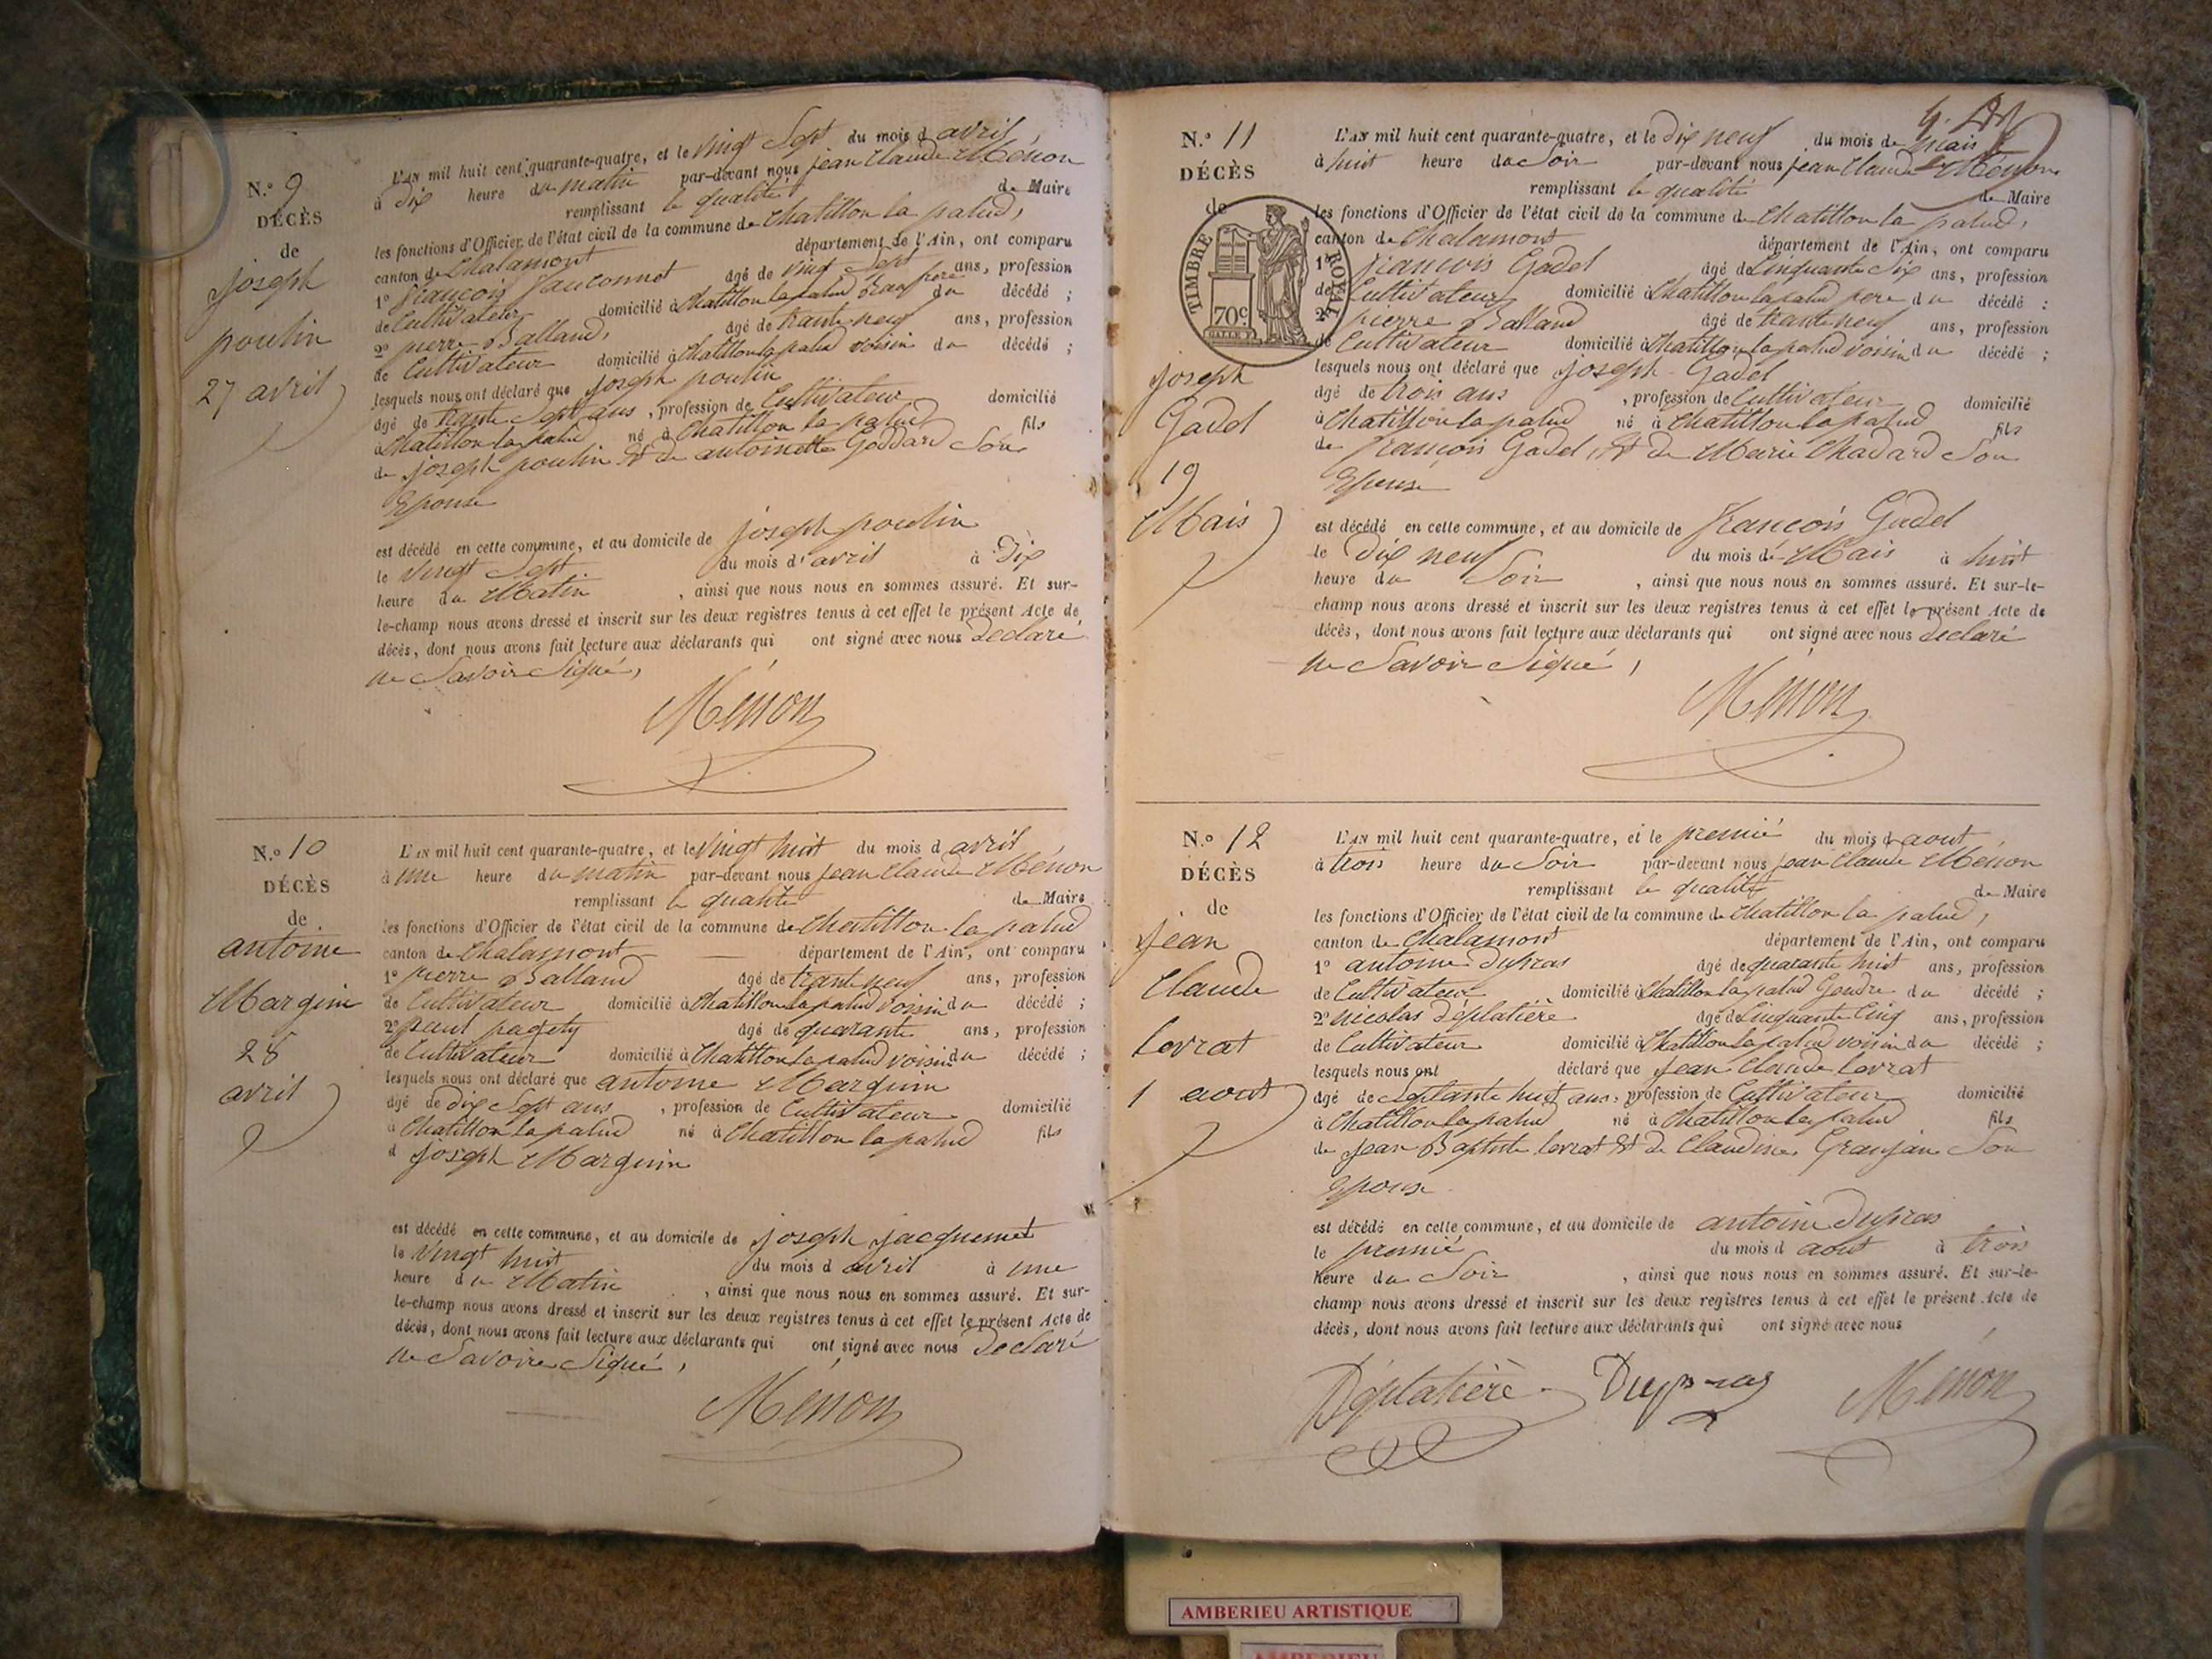 N.º 9
DÉCÈS
de
joseph
poulin
27 avril
L'AN mil huit cent quarante-quatre, et le vingt Sept du mois d avril,
à dix heure du matin par-devant nous jean Claude Ménon
remplissant la qualité de Maire
les fonctions d'Officier de l'état civil de la commune de Chatillon la palud,
canton de Chalamont département de l'Ain, ont comparu
1º françois fauconnet âgé de vingt Sept ans, profession
de Cultivateur domicilié à Chatillon la palud beau frere du décédé ;
2º pierre Balland, âgé de trante neuf ans, profession
de Cultivateur domicilié à Chatillon la palud voisin du décédé ;
lesquels nous ont déclaré que joseph poulin
âgé de trante Sept ans , profession de Cultivateur domicilié
à Chatillon la palud né à Chatillon la palud fils
de joseph poulin Et de antoinette Goddard Son
Epouse
est décédé en cette commune, et au domicile de joseph poulin
le vingt Sept du mois d'avril à Dix
heure du Matin , ainsi que nous nous en sommes assuré. Et sur-
le-champ nous avons dressé et inscrit sur les deux registres tenus à cet effet le présent Acte de
décès, dont nous avons fait lecture aux déclarants qui ont signé avec nous Declaré
ne Savoir Signé,
Ménon
N.º 10
DÉCÈS
de
antoine
Marguin
28
avril
L'AN mil huit cent quarante-quatre, et le vingt huit du mois d avril
à une heure du matin par-devant nous jean Claude Ménon
remplissant la qualité de Maire
les fonctions d'Officier de l'état civil de la commune de Chatillon la palud
canton de Chalamont département de l'Ain, ont comparu
1º pierre Balland âgé de trante neuf ans, profession
de Cultivateur domicilié à Chatillon la palud voisin du décédé ;
2º paul pagety âgé de quarante ans, profession
de Cultivateur domicilié à Chatillon la palud voisin du décédé ;
lesquels nous ont déclaré que antoine Marguin
âgé de dix Sept ans , profession de Cultivateur domicilié
à Chatillon la palud né à Chatillon la palud fils
d joseph Marguin
est décédé en cette commune, et au domicile de joseph jacquemet
le vingt huit du mois d avril à une
heure du Matin , ainsi que nous nous en sommes assuré. Et sur-
le-champ nous avons dressé et inscrit sur les deux registres tenus à cet effet le présent Acte de
décès, dont nous avons fait lecture aux déclarants qui ont signé avec nous Declaré
ne Savoir Signé,
Ménon
N.º 11
DÉCÈS
de
TIMBRE ROYAL
70c
joseph
Gadel
19
Mais
L'AN mil huit cent quarante-quatre, et le dix neuf du mois de mais
à huit heure du Soir par-devant nous jean Claude Ménon
remplissant la qualité de Maire
les fonctions d'Officier de l'état civil de la commune de Chatillon la palud,
canton de Chalamont département de l'Ain, ont comparu
1º françois Gadel âgé de Cinquante Six ans, profession
de Cultivateur domicilié à Chatillon la palud pere du décédé :
2º pierre Balland âgé de trante neuf ans, profession
de Cultivateur domicilié à Chatillon la palud voisin du décédé ;
lesquels nous ont déclaré que joseph Gadel
âgé de trois ans , profession de Cultivateur domicilié
à Chatillon la palud né à Chatillon la palud fils
de françois Gadel, Et de Marie Chadard Son
Epouse
est décédé en cette commune, et au domicile de françois Gadel
le Dix neuf du mois de Mais à huit
heure du Soir , ainsi que nous nous en sommes assuré. Et sur-le-
champ nous avons dressé et inscrit sur les deux registres tenus à cet effet le présent Acte de
décès, dont nous avons fait lecture aux déclarants qui ont signé avec nous Declaré
ne Savoir Signé,
Ménon
N.º 12
DÉCÈS
de
Jean
Claude
Lovrat
1 aout
L'AN mil huit cent quarante-quatre, et le premié du mois d aout,
à trois heure du Soir par-devant nous jean Claude Ménon
remplissant la qualité de Maire
les fonctions d'Officier de l'état civil de la commune de Chatillon la palud,
canton de Chalamont département de l'Ain, ont comparu
1º antoine Dupras âgé de quarante huit ans, profession
de Cultivateur domicilié à Chatillon la palud Gendre du décédé ;
2º nicolas Déplatière âgé de Cinquante Cinq ans, profession
de Cultivateur domicilié à Chatillon la palud voisin du décédé ;
lesquels nous ont déclaré que Jean Claude Lovrat
âgé de Septante huit ans, profession de Cultivateur domicilié
à Chatillon la palud né à Chatillon la palud fils
de Jean Baptiste Lovrat Et de Claudine Granjan Son
Epouse
est décédé en cette commune, et au domicile de antoine Dupras
le premié du mois d aout à trois
heure du Soir , ainsi que nous nous en sommes assuré. Et sur-le-
champ nous avons dressé et inscrit sur les deux registres tenus à cet effet le présent Acte de
décès, dont nous avons fait lecture aux déclarants qui ont signé avec nous
Déplatière Dupras Ménon
AMBERIEU ARTISTIQUE
AMBERIEU